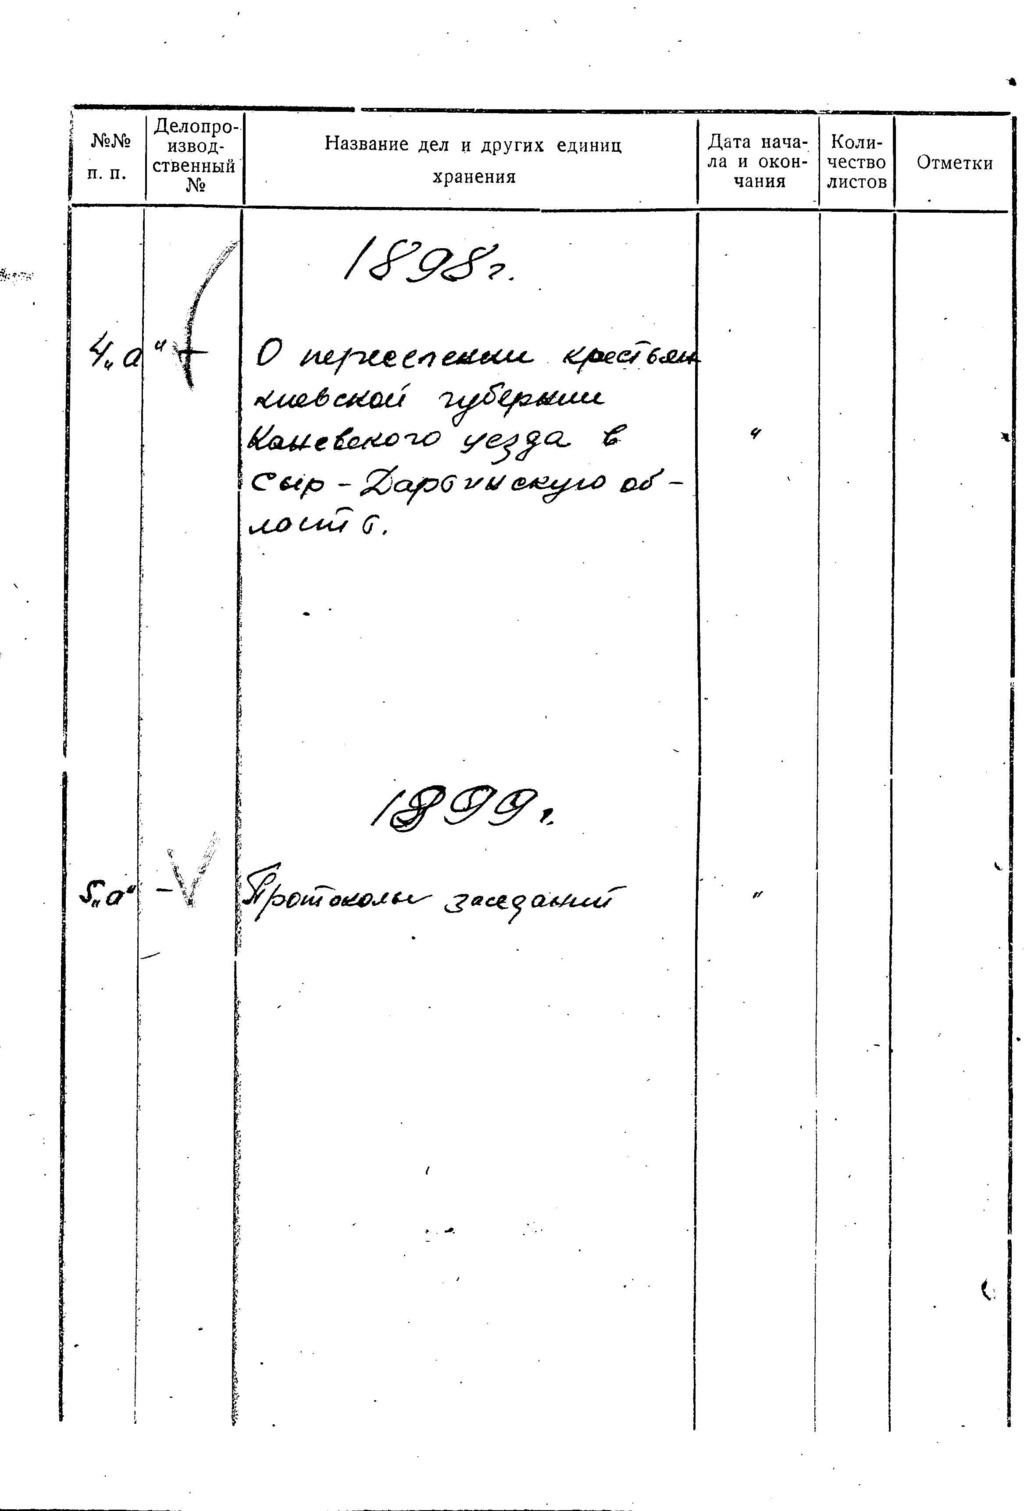 №№ п. п.
Делопро-
извод-
ственный
№
Название дел и других единиц
хранения
Дата нача-
ла и окон-
чания
Коли-
чество
листов
Отметки
1898г.
4„а“ —
О переселении крестьян
киевской губернии
Каневского уезда в
Сыр-Дарьинскую об-
ласть.
"
1899г.
5„а“ —
Протоколы заседаний
"